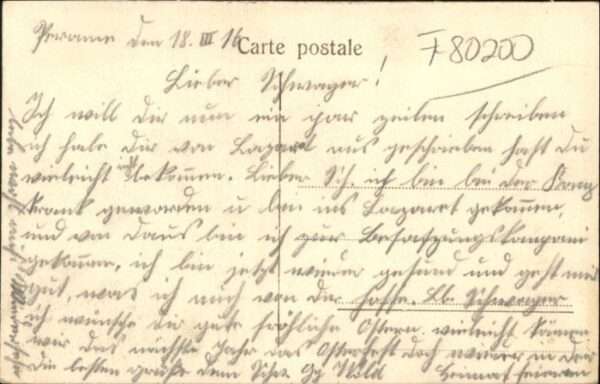 Peronne den 18. III 16
Carte postale
F 80200
Lieber Schwager!
Ich will dir nun ein par zeilen schreiben
ich habe dir von Lazaret aus geschrieben hast du
vieleicht nicht bekommen. Lieber Sch. ich bin bei der Komp
krank geworden u bin ins Lazaret gekommen,
und von daus bin ich zur Besatzungskompani
gekommen, ich bin jetzt wieder gesund und geht mir
gut, was ich auch von dir hoffe. Lb. Schwager
ich wünsche dir gute fröhliche Ostern. vieleicht können
wir das nächste Jahr das Osterfest doch wieder in der
Heimat feieren
die besten grüße dein Schw. Gg